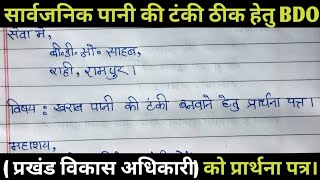 सार्वजनिक पानी की टंकी ठीक हेतु BDO
सेवा में,
बी.डी.ओ. साहब,
राही, रामपुर।
विषय : खराब पानी की टंकी बनवाने हेतु प्रार्थना पत्र।
महाशय,
( प्रखंड विकास अधिकारी) को प्रार्थना पत्र।